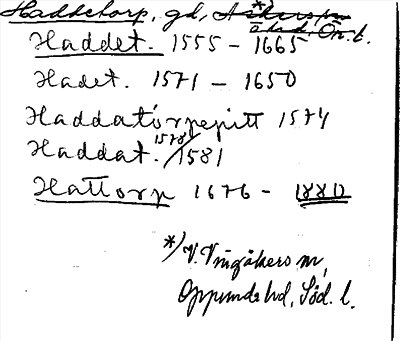 Haddetorp, gd, Åkers sn *
Öknd. Ön. l.
Haddet. 1555 - 1665
Hadet. 1571 - 1650
Haddatorpepitt 1574
Haddat. 1578/1581
Hattorp 1676 - 1880
*) V. Vingåkers sn,
Oppunda hd, Söd. l.